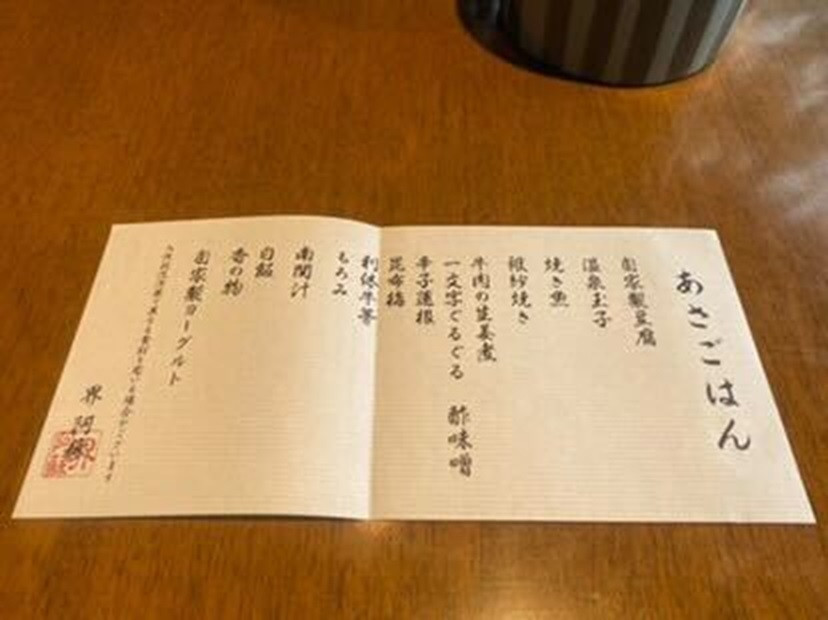 あさごはん
自家製豆腐
温泉玉子
焼き魚
袱紗焼き
牛肉の生姜煮
一文字ぐるぐる 酢味噌
辛子蓮根
昆布梅
利休牛蒡
もろみ
南関汁
白飯
香の物
自家製ヨーグルト
界 阿蘇